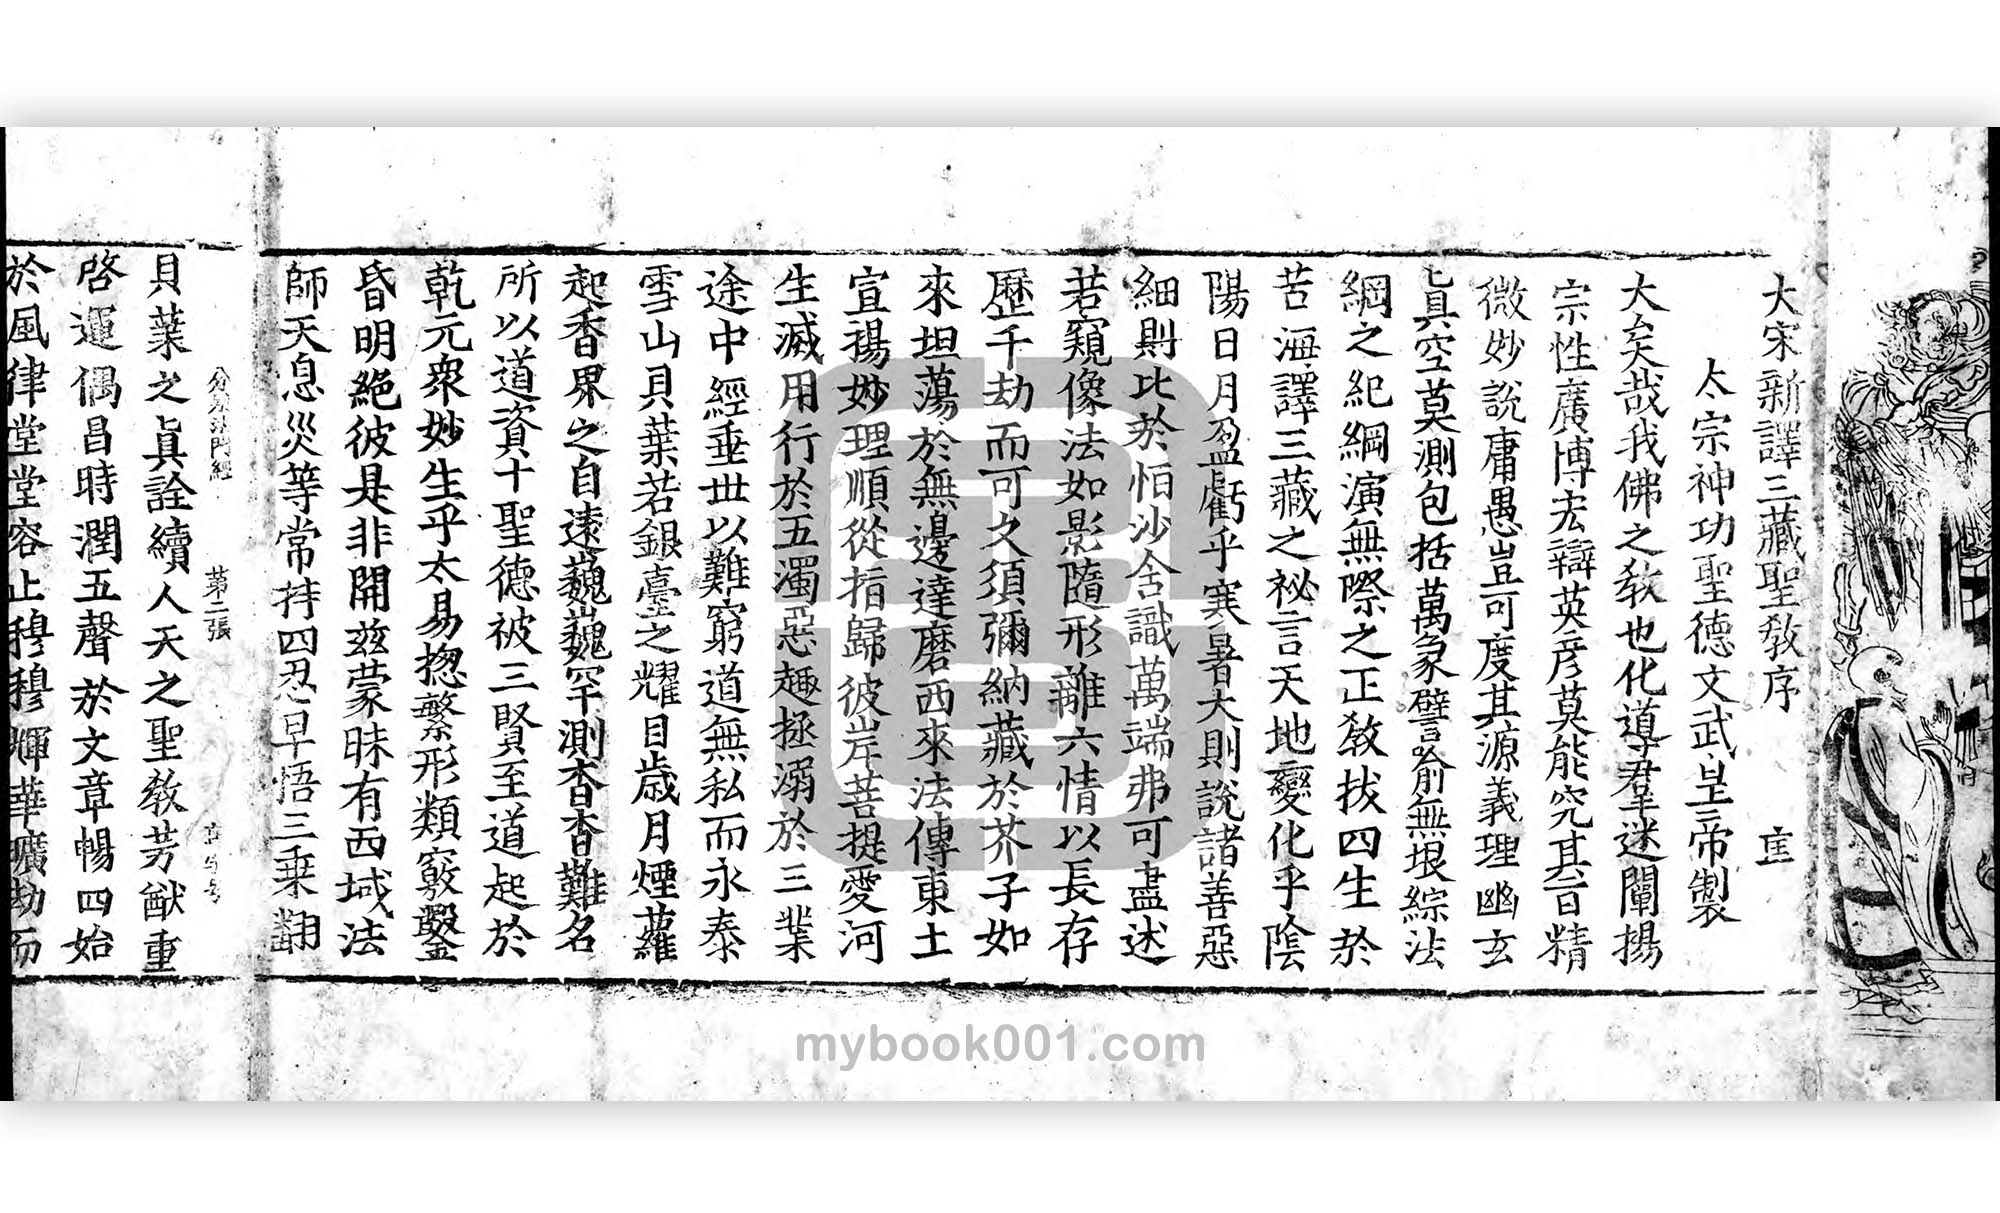 大宋新譯三藏聖教序 㝢
太宗神功聖德文武皇帝製
大矣哉我佛之教也化導羣迷闡揚
宗性廣博宏辯英彦莫能究其旨精
微妙說庸愚豈可度其源義理幽玄
真空莫測包括萬象譬喻無垠綜法
綱之紀綱演無際之正教拔四生於
苦海譯三藏之祕言天地變化乎陰
陽日月盈虧乎寒暑大則說諸善惡
細則比於恒沙含識萬端弗可盡述
若窺像法如影隨形離六情以長存
歷千劫而可久須彌納藏於芥子如
來坦蕩於無邊達磨西來法傳東土
宣揚妙理順從指歸彼岸菩提愛河
生滅用行於五濁惡趣拯溺於三業
途中經垂世以難窮道無私而永泰
雪山貝葉若銀臺之耀目歲月煙蘿
起香界之自遠巍巍罕測杳杳難名
所以道資十聖德被三賢至道起於
乾元衆妙生乎太易揔繁形類竅鑿
昏明絕彼是非開兹蒙昧有西域法
師天息災等常持四忍早悟三乘翻
第二張
貝葉之真詮續人天之聖教芳猷重
啓運偶昌時潤五聲於文章暢四始
於風律堂堂容止穆穆輝華曠劫而
mybook001.com